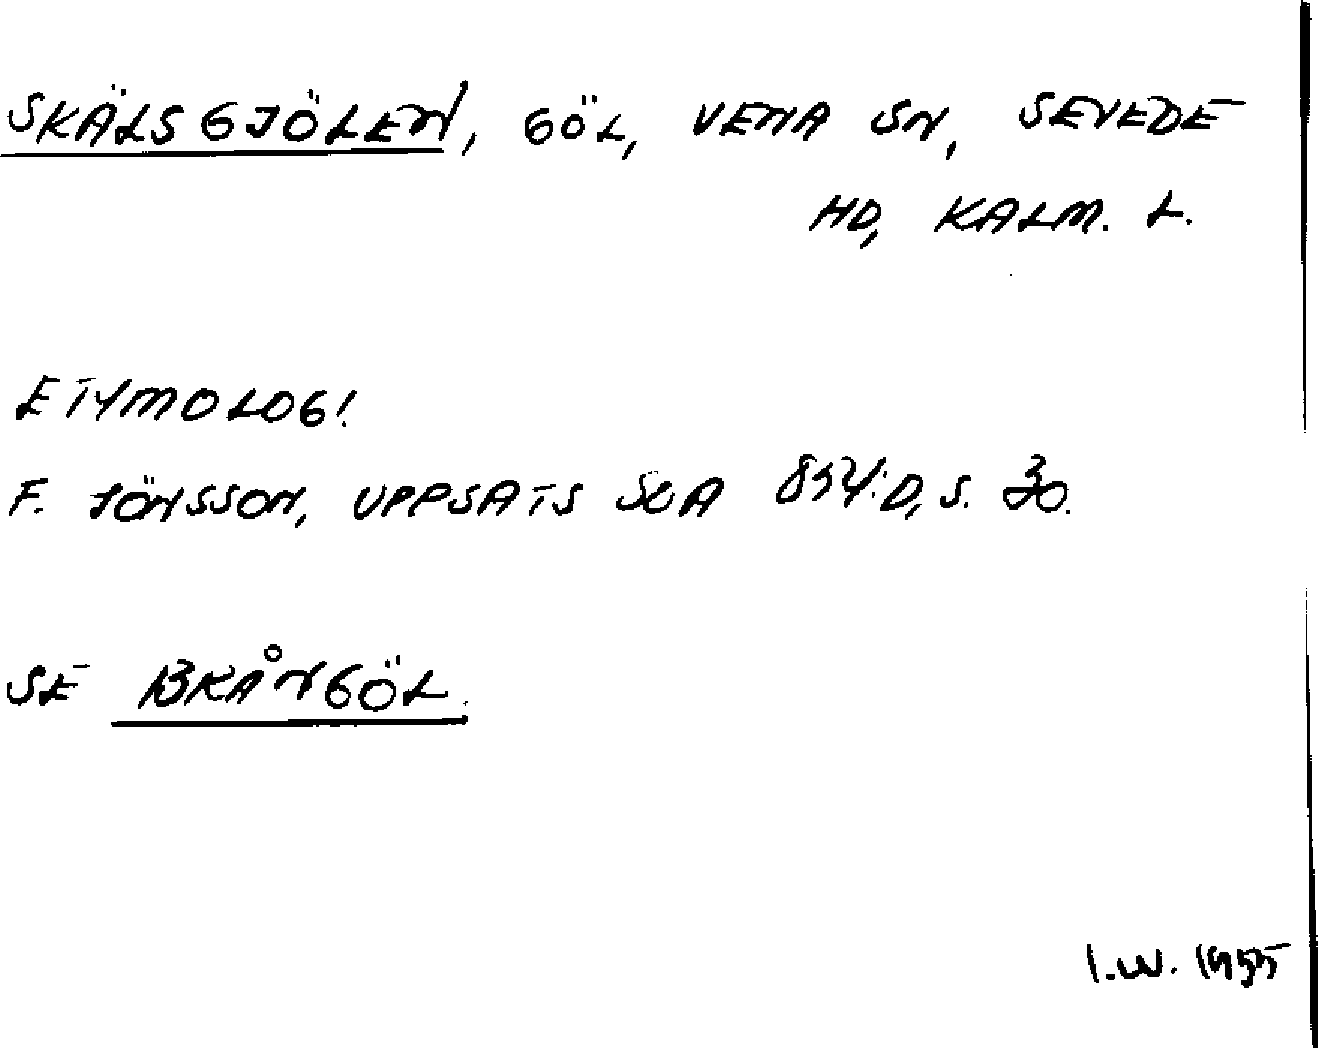 SKÄLSGJÖLEN, GÖL, VENA SN, SEVEDE
HD, KALM. L.
ETYMOLOGI.
F. JÖNSSON, UPPSATS SOA 854:D, S. 30.
SE BRÅNGÖL.
I.W. 1955